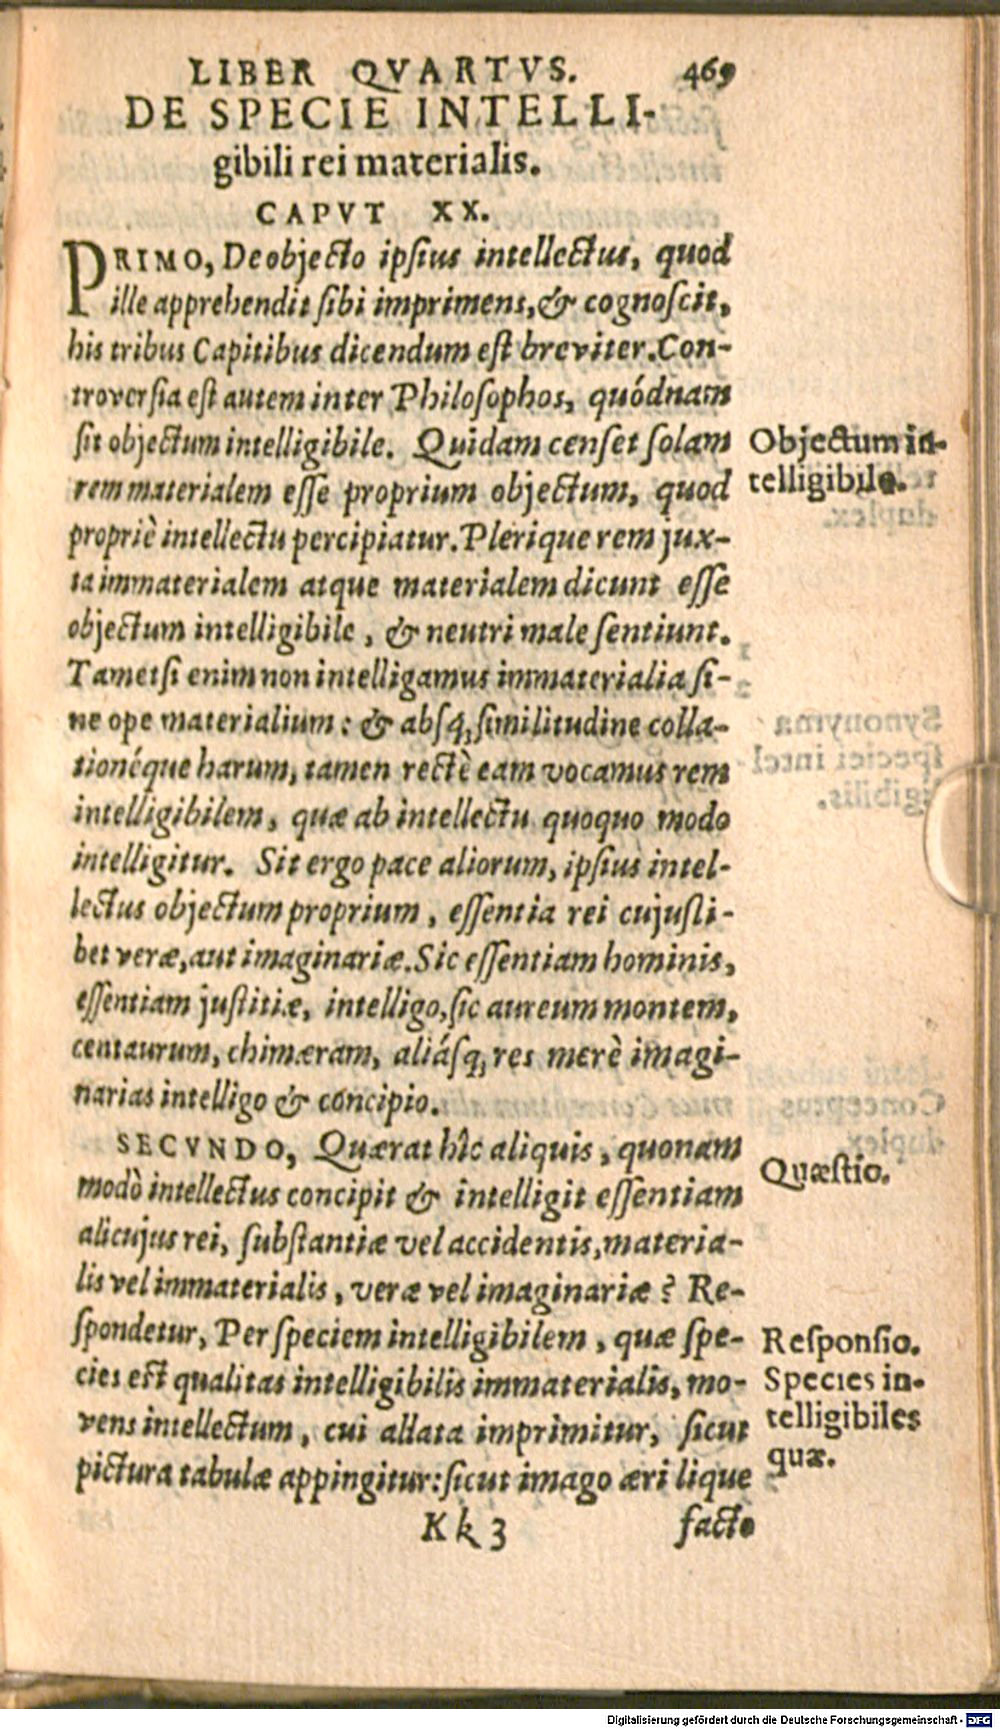 LIBER QVARTVS. 469
DE SPECIE INTELLI-
gibili rei materialis.
CAPVT XX.
PRIMO, De objecto ipsius intellectus, quod
ille apprehendit sibi imprimens, & cognoscit,
his tribus Capitibus dicendum est breviter. Con-
troversia est autem inter Philosophos, quódnam
sit objectum intelligibile. Quidam censet solam
rem materialem esse proprium objectum, quod
propriè intellectu percipiatur. Plerique rem jux-
ta immaterialem atque materialem dicunt esse
objectum intelligibile, & neutri male sentiunt.
Tametsi enim non intelligamus immaterialia si-
ne ope materialium: & absq, similitudine colla-
tionéque harum, tamen rectè eam vocamus rem
intelligibilem, quæ ab intellectu quoquo modo
intelligitur. Sit ergo pace aliorum, ipsius intel-
lectus objectum proprium, essentia rei cujusli-
bet veræ, aut imaginariæ. Sic essentiam hominis,
essentiam justitiæ, intelligo, sic aureum montem,
centaurum, chimæram, aliásq, res merè imagi-
narias intelligo & concipio.
SECVNDO, Quærat hîc aliquis, quonam
modò intellectus concipit & intelligit essentiam
alicujus rei, substantiæ vel accidentis, materia-
lis vel immaterialis, veræ vel imaginariæ? Re-
spondetur, Per speciem intelligibilem, quæ spe-
cies est qualitas intelligibilis immaterialis, mo-
vens intellectum, cui allata imprimitur, sicut
pictura tabulæ appingitur: sicut imago æri lique
K k 3 facto
Objectum in-
telligibile.
Quæstio.
Responsio.
Species in-
telligibiles
quæ.
Digitalisierung gefördert durch die Deutsche Forschungsgemeinschaft - DFG